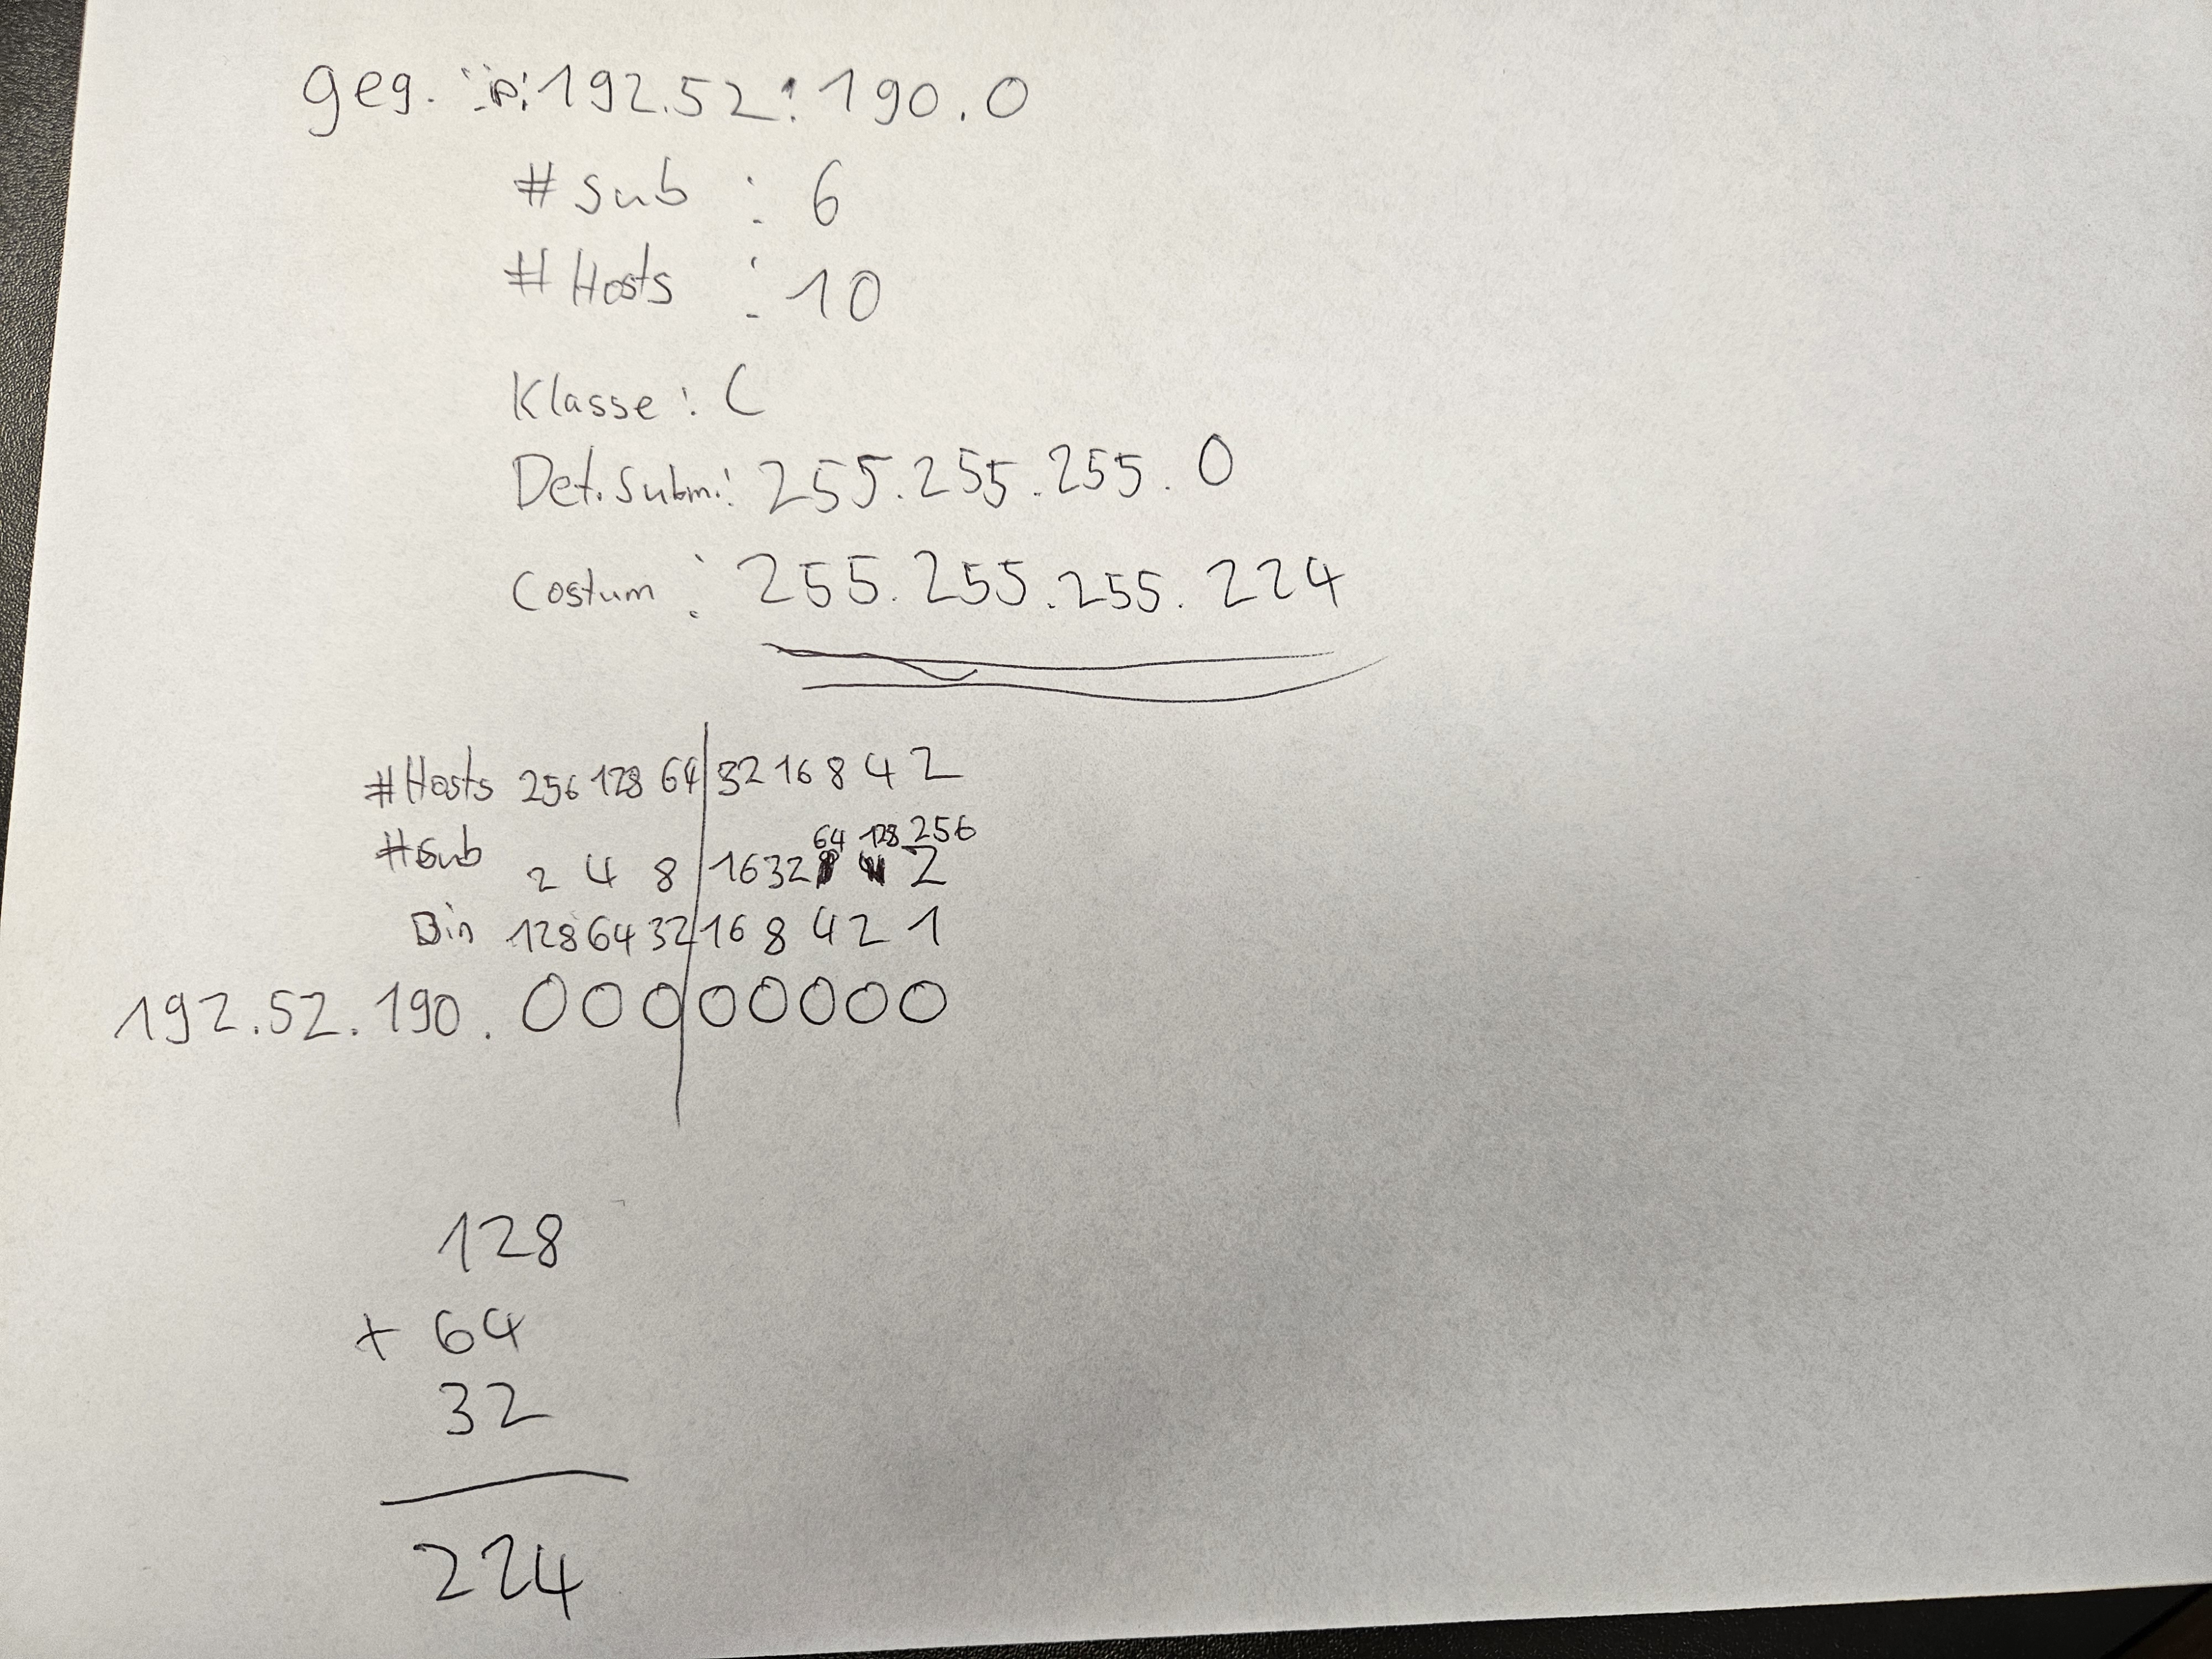 geg. IP: 192.52.190.0
# Sub : 6
# Hosts : 10
Klasse: C
Def. Subm.: 255.255.255.0
Costum : 255.255.255.224
#Hosts 256 128 64 32 16 8 4 2
64 128 256
#Sub 2 4 8 16 32 2
Bin 128 64 32 16 8 4 2 1
192.52.190. 0 0 0 0 0 0 0 0
128
+ 64
32
224